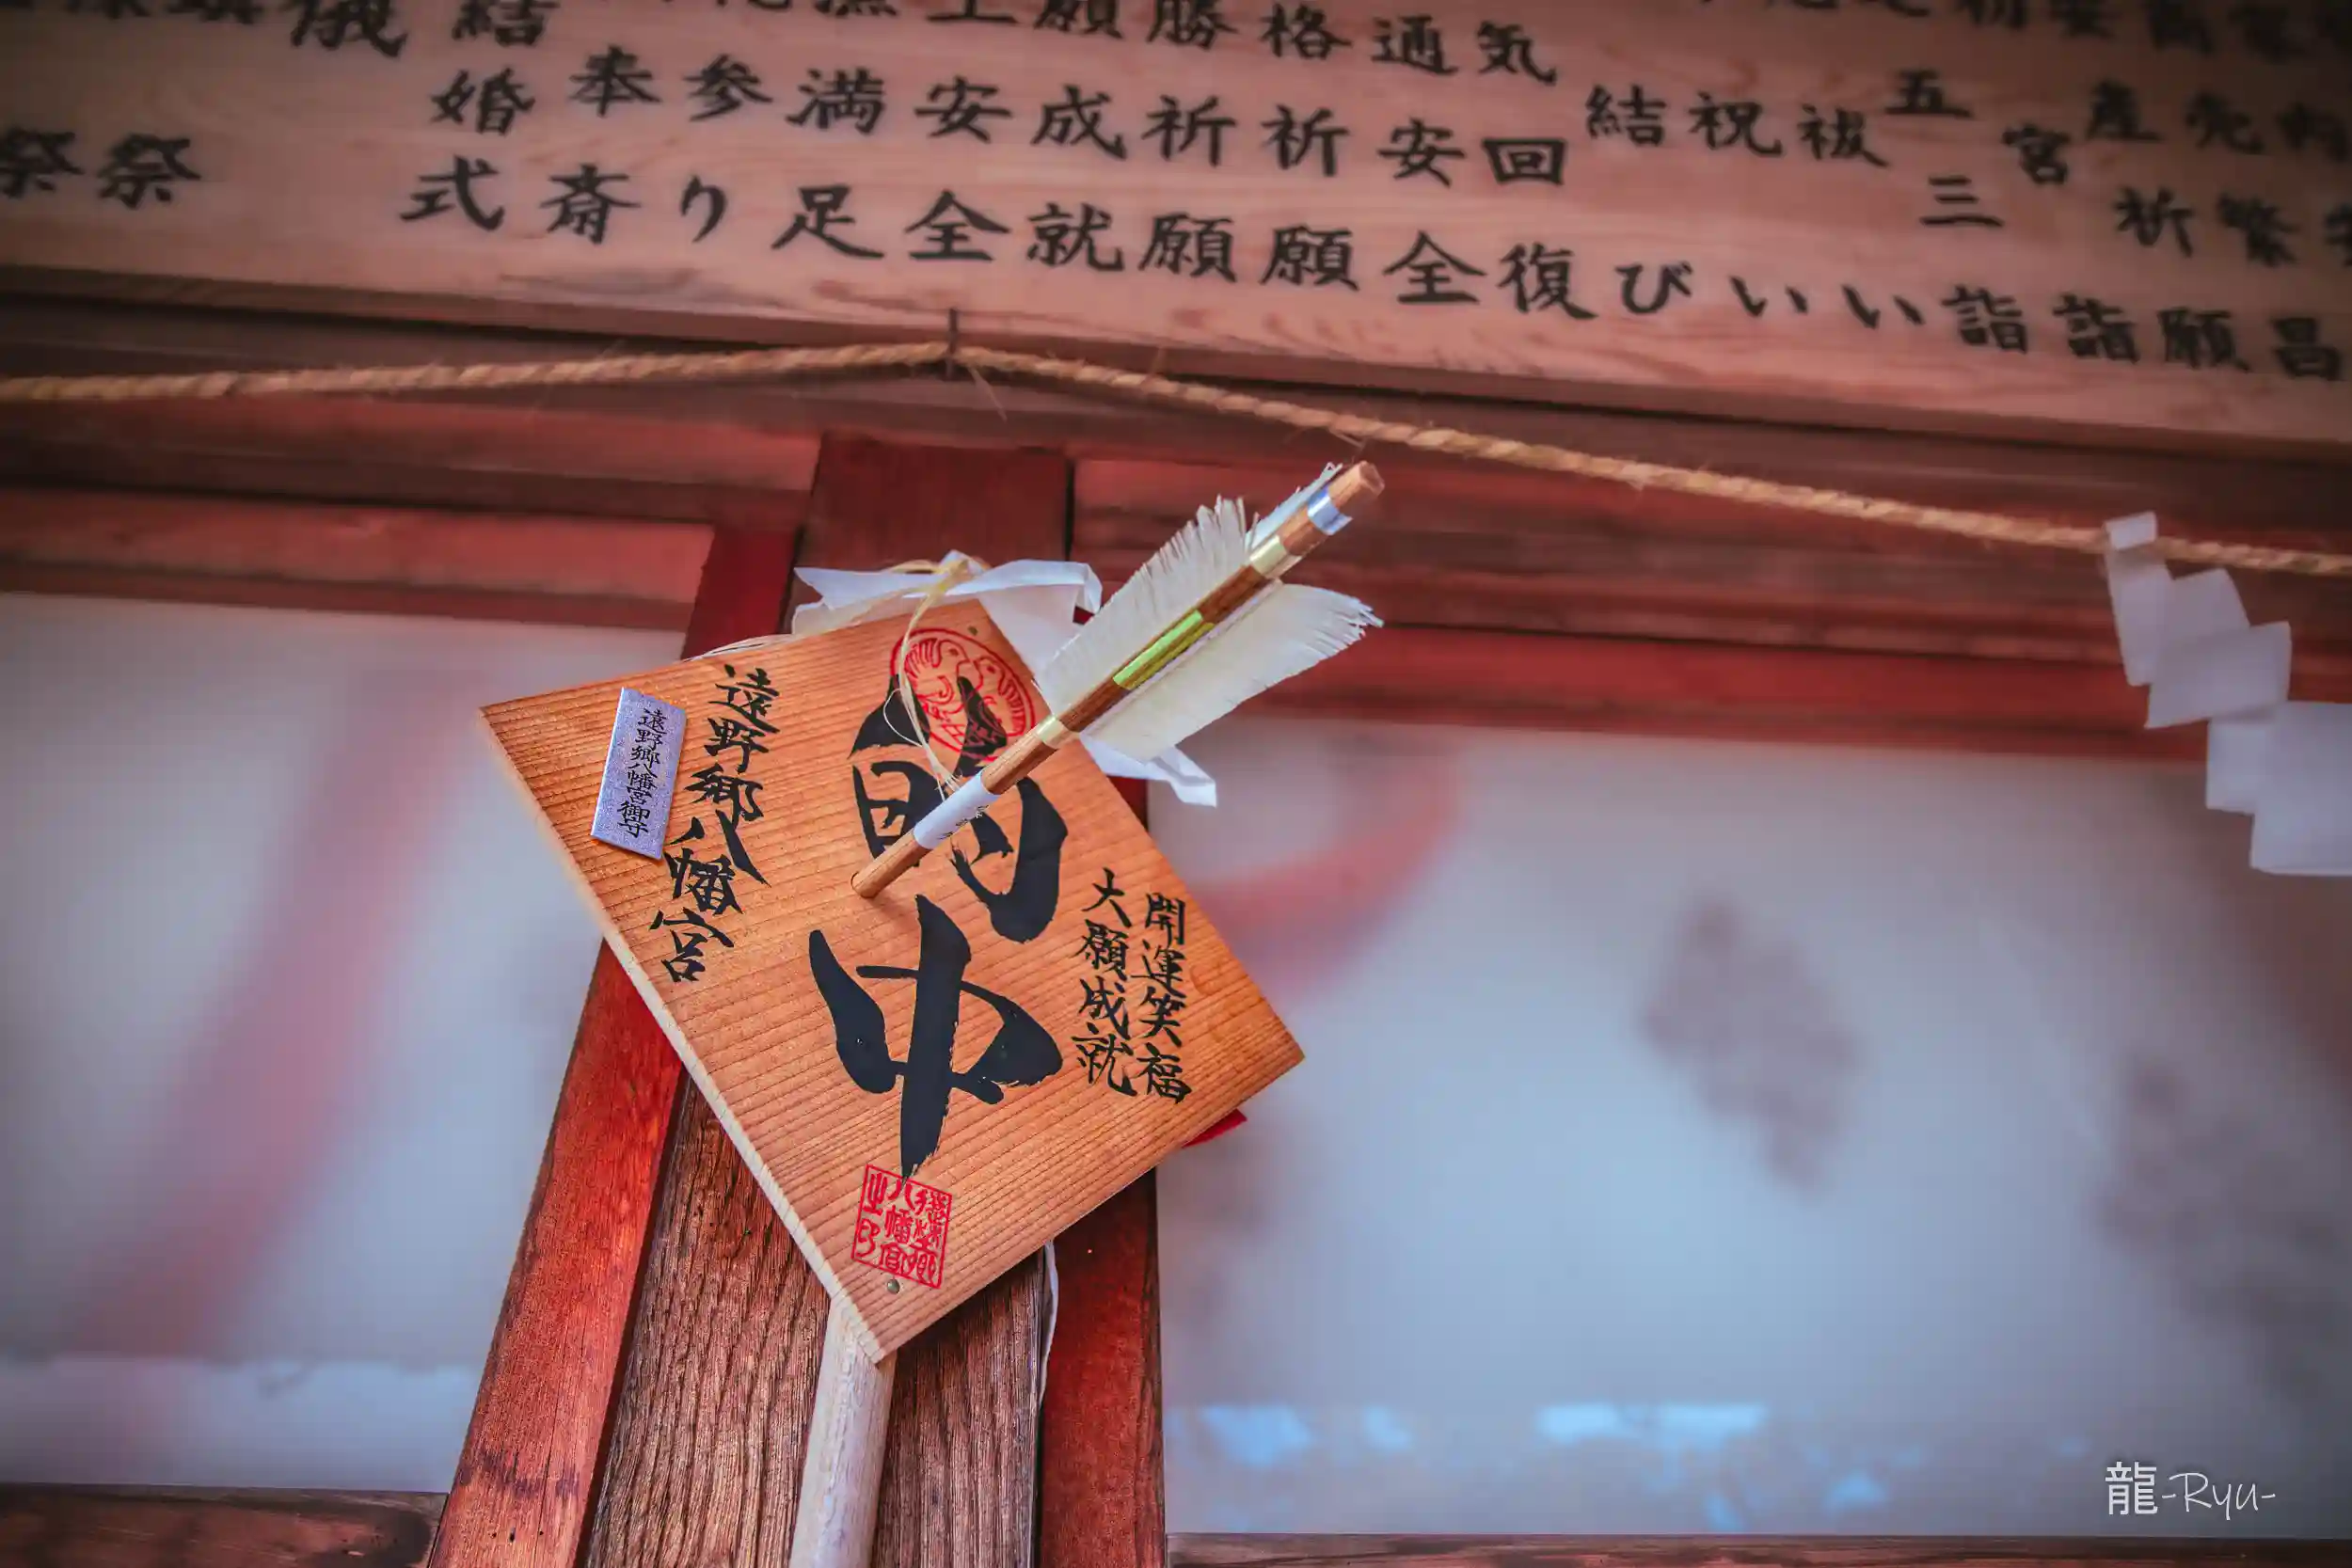 売繁昌
安産祈願
初宮詣
五三詣
祓い
祝い
結び
気回復
通安全
格祈願
勝祈願
願成就
上安全
漁満足
参り
奉斎
結婚式
儀
鎮祭
祭
開運笑福
大願成就
的中
遠野郷八幡宮
遠野郷八幡宮御守
遠野郷八幡宮之印
龍-Ryu-